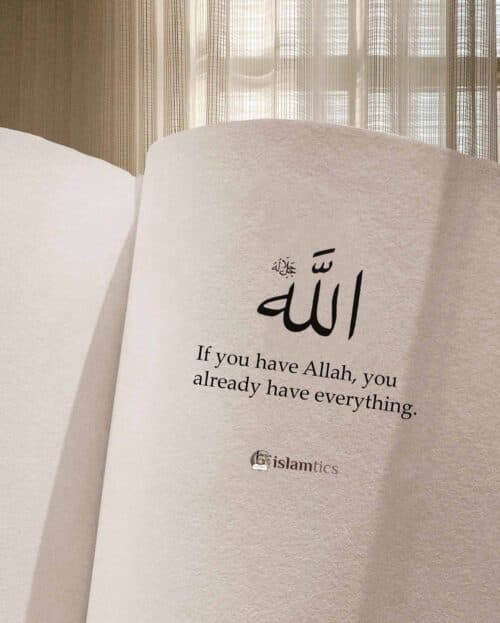 الله ﷻ
If you have Allah, you
already have everything.
islamtics